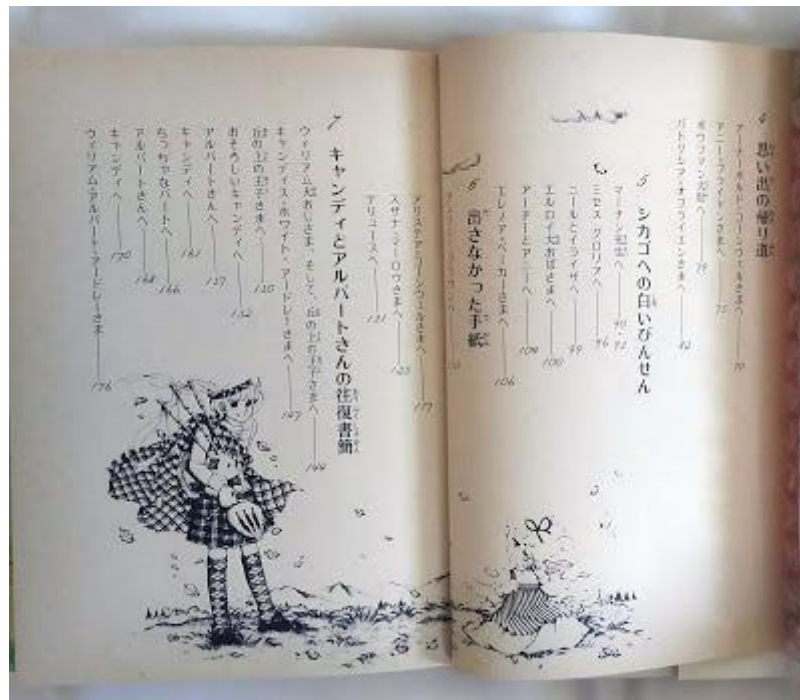 4 思い出の帰り道
アーチーボルド・コーンウェルさまへ 70
アニー・ブライトンさまへ 75
ホワイトマン 79
パトリシア・オブライエンさまへ 82
5 シカゴへの白いびんせん
マーチン先生へ 90・92
ミセス・グロリアへ 96
ニールとイライザへ 99
エルロイ大おばさまへ 100
アーチーとアニーへ 104
エレノア・ベーカーさまへ 106
6 出さなかった手紙
アリステア・コーンウェルさまへ 117
スザナ・マーロウさまへ 125
テリュースへ 131
7 キャンディとアルバートさんの往復書簡
ウィリアム大おじさま、そして、丘の上の王子さまへ 144
キャンディス・ホワイト・アードレーさまへ 147
丘の上の王子さまへ 150
おそろしいキャンディへ 152
アルバートさんへ 157
キャンディへ 161
ちっちゃなバートへ 166
アルバートさんへ 168
キャンディへ 170
ウィリアム・アルバート・アードレーさまへ 176